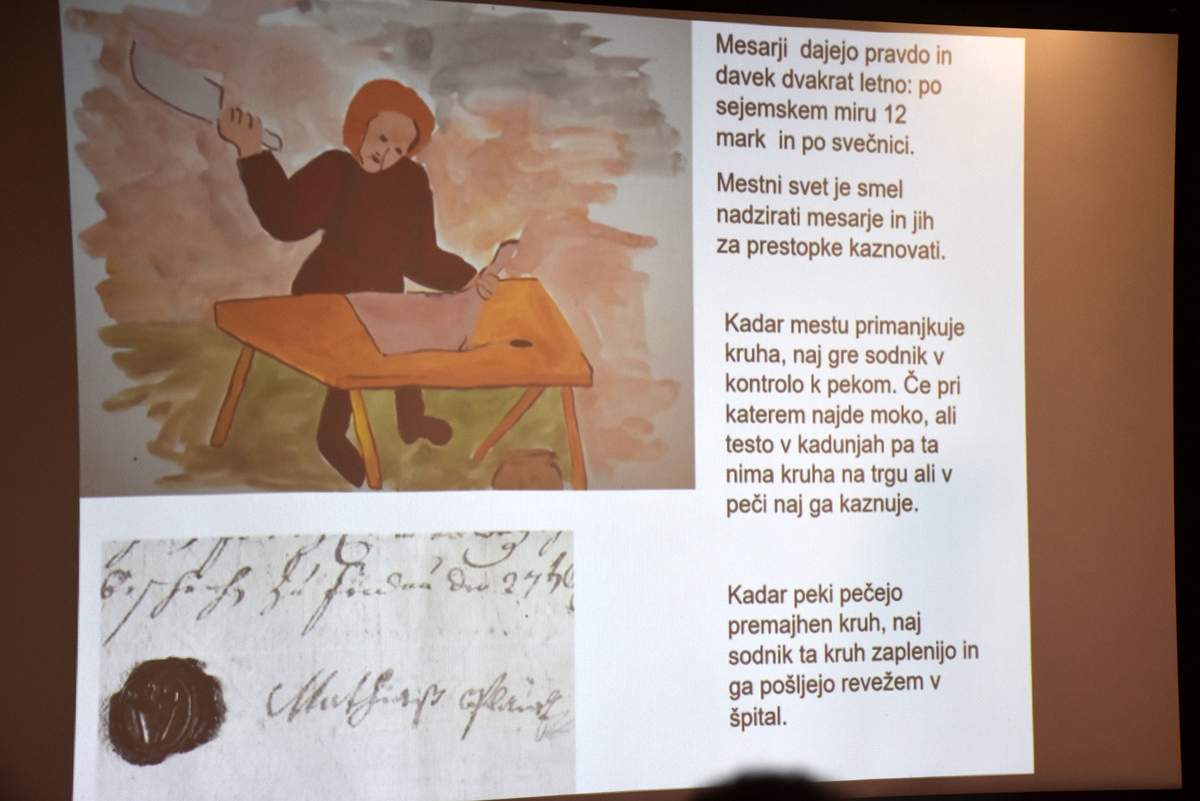 Mesarji dajejo pravdo in
davek dvakrat letno: po
sejemskem miru 12
mark in po svečnici.
Mestni svet je smel
nadzirati mesarje in jih
za prestopke kaznovati.
Kadar mestu primanjkuje
kruha, naj gre sodnik v
kontrolo k pekom. Če pri
katerem najde moko, ali
testo v kadunjah pa ta
nima kruha na trgu ali v
peči naj ga kaznuje.
Kadar peki pečejo
premajhen kruh, naj
sodnik ta kruh zaplenijo in
ga pošljejo revežem v
špital.
Mathiaß